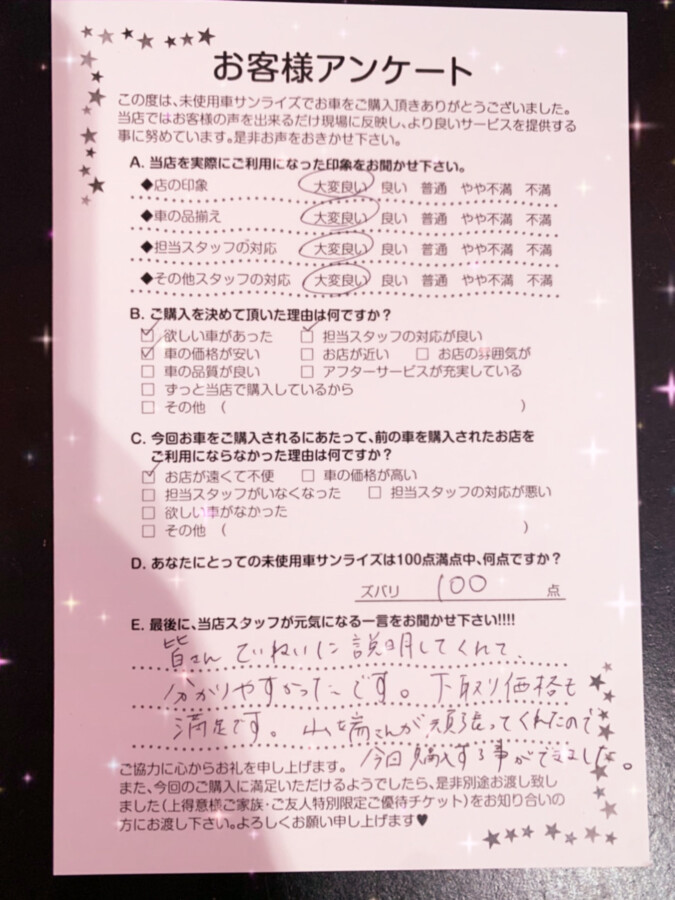 お客様アンケート
この度は、未使用車サンライズでお車をご購入頂きありがとうございました。
当店ではお客様の声を出来るだけ現場に反映し、より良いサービスを提供する
事に努めています。是非お声をおきかせ下さい。
A. 当店を実際にご利用になった印象をお聞かせ下さい。
◆店の印象 大変良い 良い 普通 やや不満 不満
◆車の品揃え 大変良い 良い 普通 やや不満 不満
◆担当スタッフの対応 大変良い 良い 普通 やや不満 不満
◆その他スタッフの対応 大変良い 良い 普通 やや不満 不満
B. ご購入を決めて頂いた理由は何ですか?
☑ 欲しい車があった ☑ 担当スタッフの対応が良い
☑ 車の価格が安い □ お店が近い □ お店の雰囲気が
□ 車の品質が良い □ アフターサービスが充実している
□ ずっと当店で購入しているから
□ その他 ( )
C. 今回お車をご購入されるにあたって、前の車を購入されたお店を
ご利用にならなかった理由は何ですか?
☑ お店が遠くて不便 □ 車の価格が高い
□ 担当スタッフがいなくなった □ 担当スタッフの対応が悪い
□ 欲しい車がなかった
□ その他 ( )
D. あなたにとっての未使用車サンライズは100点満点中、何点ですか?
ズバリ 100 点
E. 最後に、当店スタッフが元気になる一言をお聞かせ下さい!!!!
皆さんていねいに説明してくれて、
分かりやすかったです。下取り価格も
満足です。山崎さんが頑張ってくれたので
今回購入する事ができました。
ご協力に心からお礼を申し上げます。
また、今回のご購入に満足いただけるようでしたら、是非別途お渡し致し
ました(上得意様ご家族・ご友人特別限定ご優待チケット)をお知り合いの
方にお渡し下さい。よろしくお願い申し上げます♥